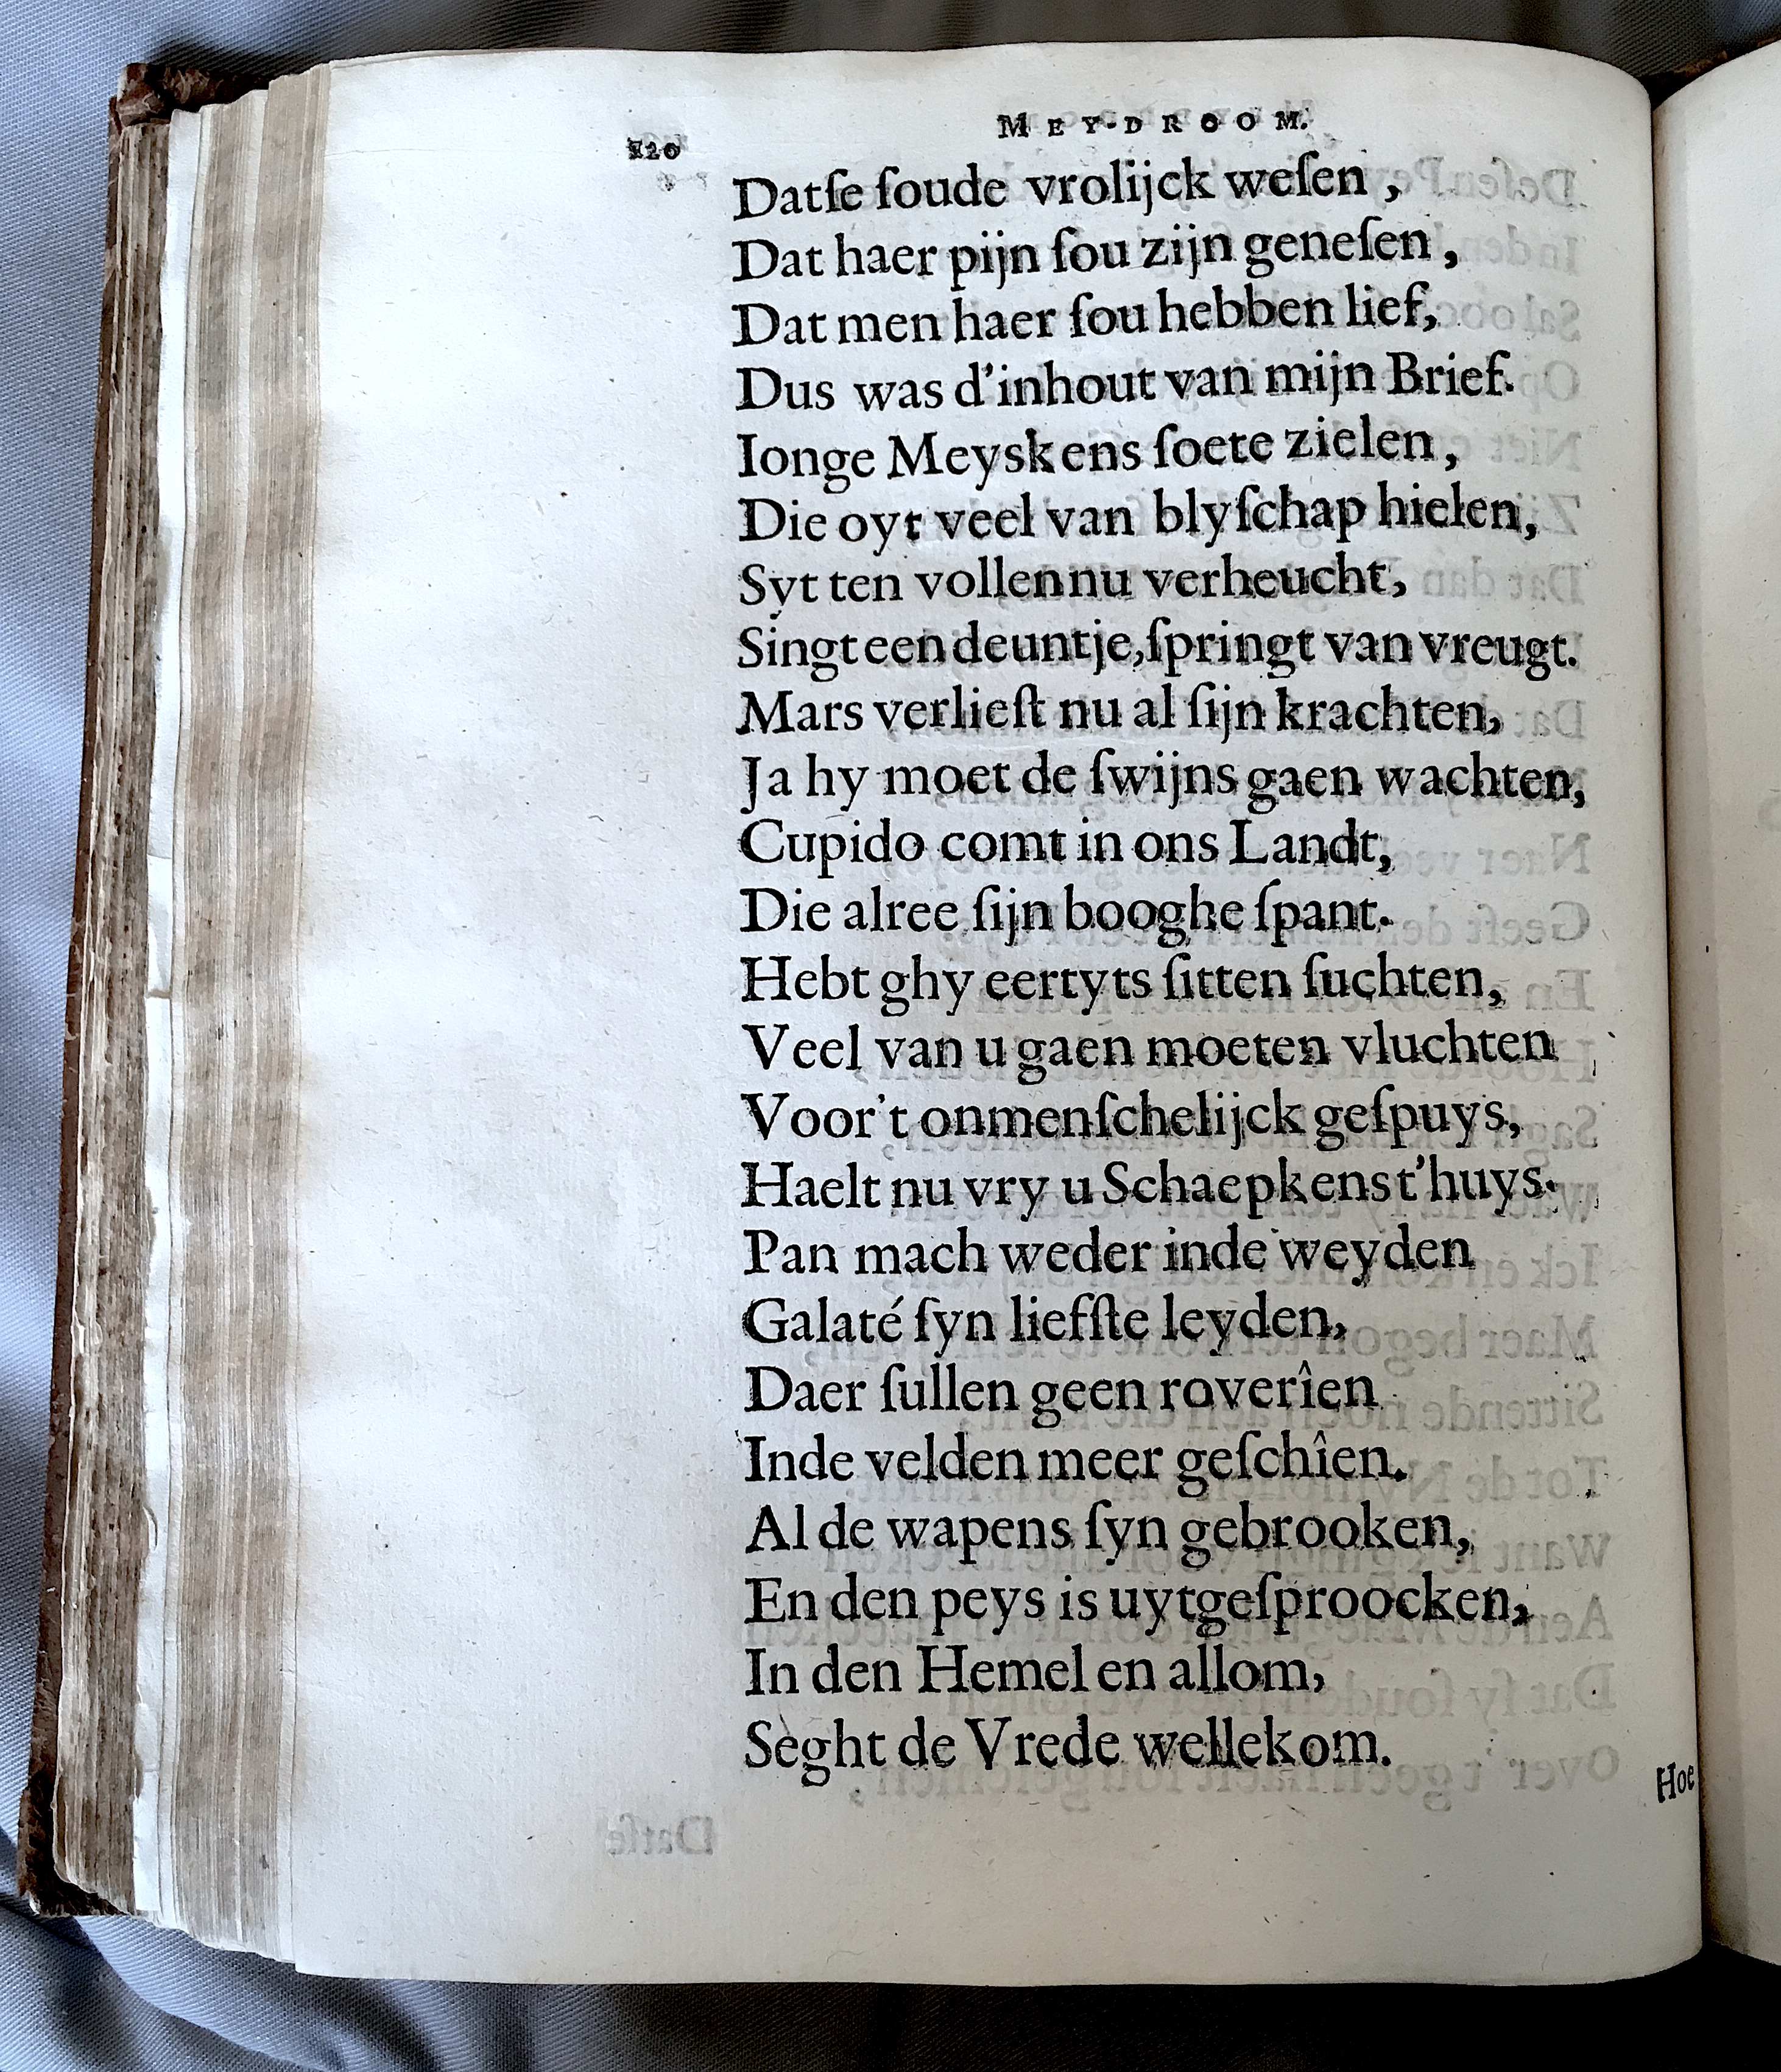 120
MEY-DROOM.
Datſe ſoude vrolijck weſen,
Dat haer pijn ſou zijn geneſen,
Dat men haer ſou hebben lief,
Dus was d'inhout van mijn Brief.
Ionge Meyskens ſoete zielen,
Die oyt veel van blyſchap hielen,
Syt ten vollen nu verheucht,
Singt een deuntje, ſpringt van vreugt.
Mars verlieſt nu al ſijn krachten,
Ja hy moet de ſwijns gaen wachten,
Cupido comt in ons Landt,
Die alree ſijn booghe ſpant.
Hebt ghy eertyts ſitten ſuchten,
Veel van u gaen moeten vluchten
Voor't onmenſchelijck geſpuys,
Haelt nu vry u Schaepkens t'huys.
Pan mach weder inde weyden
Galaté ſyn liefſte leyden,
Daer ſullen geen roverîen
Inde velden meer geſchîen.
Al de wapens ſyn gebrooken,
En den peys is uytgeſproocken,
In den Hemel en allom,
Seght de Vrede wellekom.
Hoe